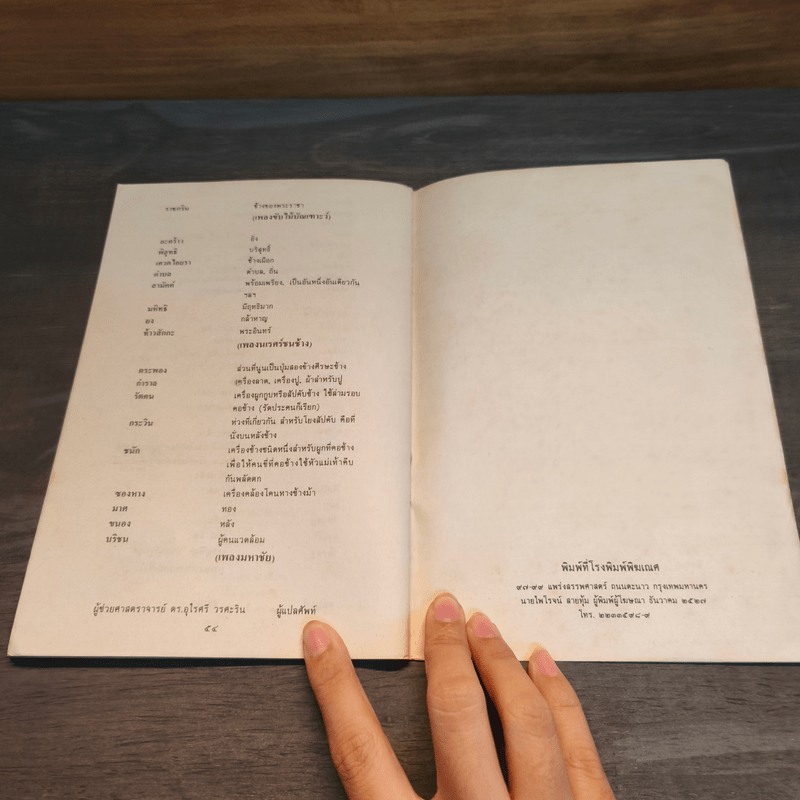 ราชกริน ช้างของพระราชา
(เพลงขับไม้บัณเฑาะว์)
ตะคร้าว ยัง
พิสุทธิ บริสุทธิ์
เศวตไอยรา ช้างเผือก
ตำบล ตำบล, ถิ่น
สามัคค์ พร้อมเพรียง, เป็นอันหนึ่งอันเดียวกัน
ฯลฯ
มหิทธิ มีฤทธิมาก
อง กล้าหาญ
ท้าวสักกะ พระอินทร์
(เพลงนเรศร์ชนช้าง)
ตระพอง ส่วนที่นูนเป็นปุ่มสองข้างศีรษะช้าง
ลำราด เครื่องลาด, เครื่องปู, ผ้าสำหรับปู
รัตคน เครื่องผูกกูบหรือสัปคับช้าง ใช้ล่ามรอบ
คอช้าง (รัดประคนก็เรียก)
กระวิน ห่วงที่เกี่ยวกัน สำหรับโยงสัปคับ คือที่
นั่งบนหลังช้าง
ชนัก เครื่องช้างชนิดหนึ่งสำหรับผูกที่คอช้าง
เพื่อให้คนขี่ที่คอช้างใช้หัวแม่เท้าคีบ
กันพลัดตก
ซองหาง เครื่องคล้องโคนหางช้างม้า
มาศ ทอง
ขนอง หลัง
บริชน ผู้คนแวดล้อม
(เพลงมหาชัย)
ผู้ช่วยศาสตราจารย์ ดร.อุไรศรี วรศะริน ผู้แปลศัพท์
๕๔
พิมพ์ที่โรงพิมพ์พิฆเณศ
๙๗-๙๙ แพร่งสรรพศาสตร์ ถนนตะนาว กรุงเทพมหานคร
นายไพโรจน์ สายทุ้ม ผู้พิมพ์ผู้โฆษณา ธันวาคม ๒๕๒๗
โทร. ๒๒๓๓๕๙๘-๙